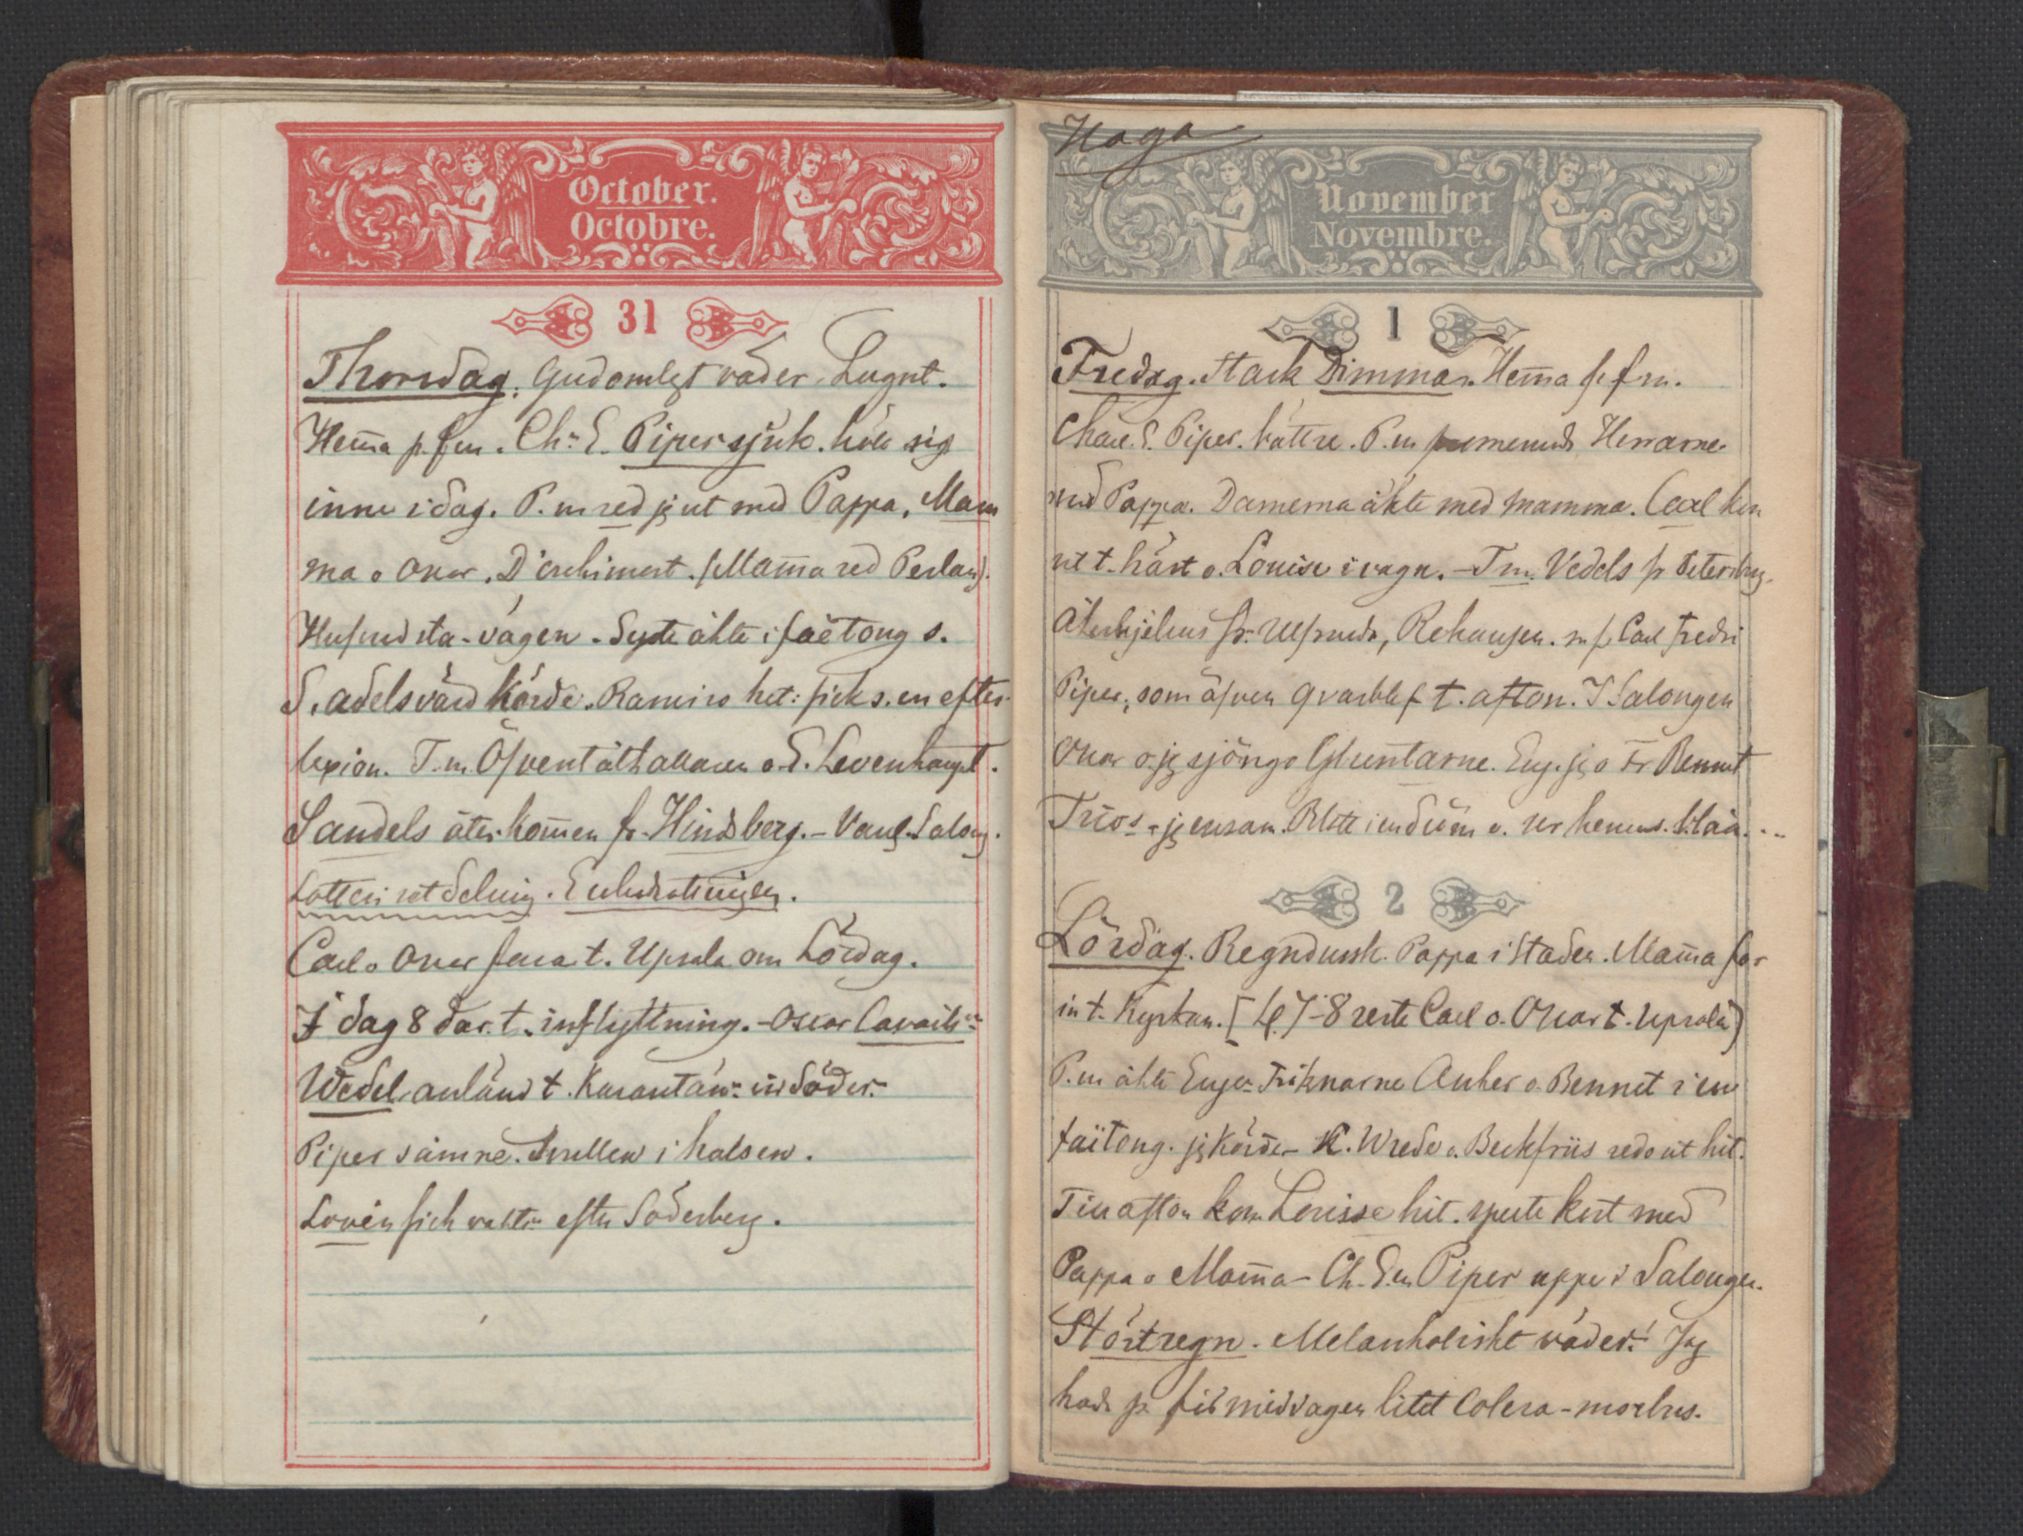 October.
Octobre.
31
Thorsdag. Gudomligt väder. Lugnt.
Hem̄a p. fm. Ch: E. Piper sjuk. höll sig
inne i dag. P. m red jg ut med Pappa, Mam
ma o Oscar. D'orchimont. (Mam̄a red Perlan).
Hufvudsta-vägen. Syste åkte i faëtong s.
S. Adelsvärd körde. Ramiro het: fick s. en efter
lexion. T. m. Öfverståthållaren o E. Levenhaupt.
Sandels åter kom̄en fr. Hindsberg. - Vanl. Salong.
Lotteri utdelning.
Carl o Oscar fara t. Upsala om Lördag.
I dag 8 dar. t. inflyttning. - Oscar
Wedel anländ t. Karantän: vid Söder:
Piper sämre. Svullen i halsen.
Lovén fick vakten efter Söderberg.
Haga
November
Novembre.
1
Fredag. Stark Dimma. Hem̄a p. f m.
Charl. E. Piper. bättre. P. m promenad Herrarne
med Pappa. Damerna åkte med Mamma. Carl kom
ut t. häst o. Louise i vagn. - T m. Vedels fr Petersburg.
Åkerhjelms fr. Ulfsunda, Rehausen. m fl Carl Fredri
Piper, som äfven qvarblef t. afton. I Salongen
Oscar o jg sjöngo Gluntarne. Eug. jg o Fr Bennet
Trios - jg ensam. Blott i en dröm o. ver
2
Lördag. Regndusk. Pappa i Staden. Mam̄a for
in t. Kyrkan. [Kl. 7-8 reste Carl o. Oscar t. Upsala]
P. m åkte Eugen Friknarne Anker o. Bennet i en
faëtong. jg körde - K. Wrede o. Beckfriis redo ut hit.
Till afton kom Lovisse hit. spelte kort med
Pappa o Mam̄a - Ch. E. en Piper uppe i Salongen.
Störtregn. Melankoliskt väder! Jag
hade p. förmiddagen litet Colera-morbus.